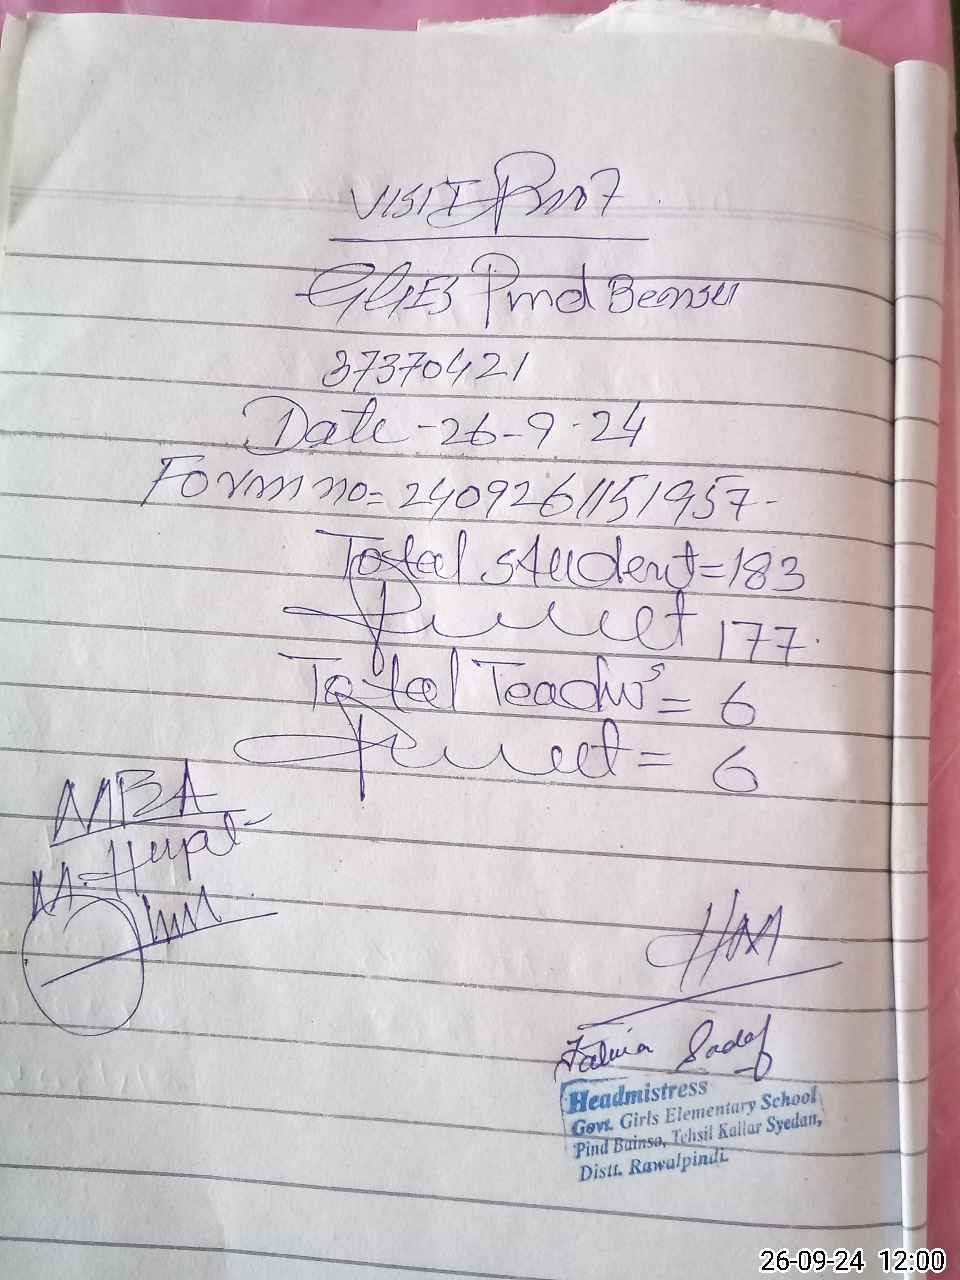 VISIT
GGES Pind Bensu
37370421
Date - 26-9-24
Form no = 2409261151957-
Total student = 183
177.
Total Teachers = 6
= 6
MEA
M.
HM
Sadaf
Headmistress
Govt. Girls Elementary School
Pind Bainso, Tehsil Kallar Syedan,
Distt. Rawalpindi.
26-09-24 12:00